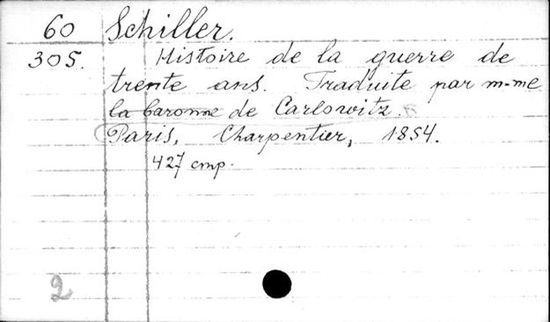 60 Schiller.
305. Histoire de la guerre de
trente ans. Traduite par m-me
la baronne de Carlowitz.
Paris, Charpentier, 1854.
427 стр.
2